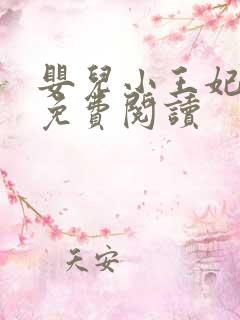 嬰兒小王妃
免費閱讀
天安